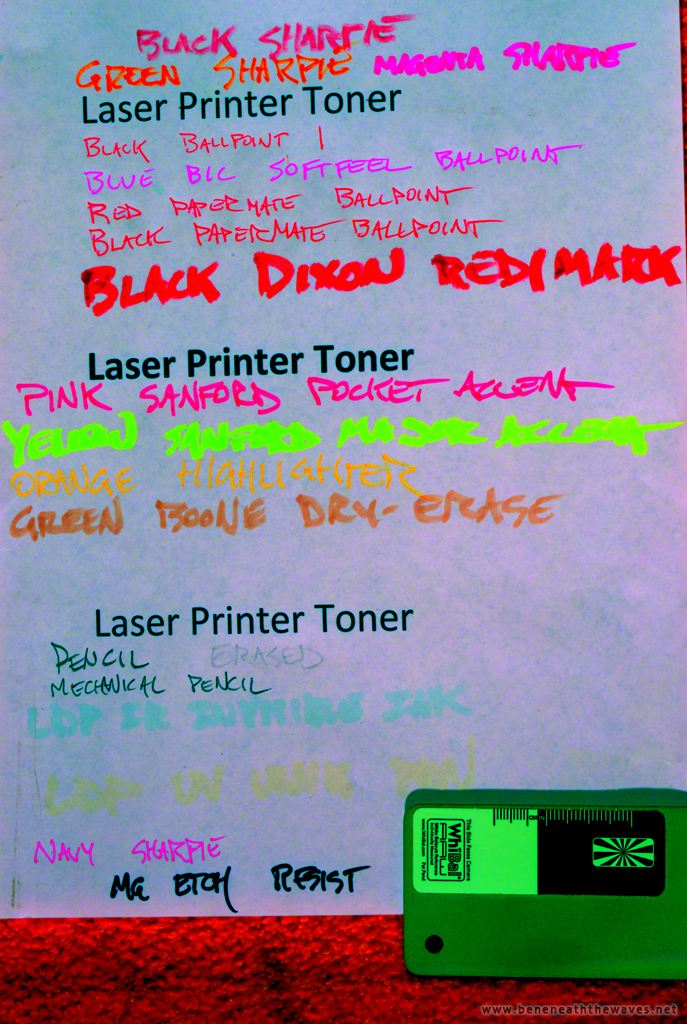 BLACK SHARPIE
GREEN SHARPIE MAGENTA SHARPIE
Laser Printer Toner
BLACK BALLPOINT 1
BLUE BIC SOFTFEEL BALLPOINT
RED PAPERMATE BALLPOINT
BLACK PAPERMATE BALLPOINT
BLACK DIXON REDIMARK
Laser Printer Toner
PINK SANFORD POCKET ACCENT
YELLOW SANFORD MAJOR ACCENT
ORANGE HIGHLIGHTER
GREEN BOONE DRY-ERASE
Laser Printer Toner
PENCIL ERASED
MECHANICAL PENCIL
LDP IR INVISIBLE INK
LDP UV PEN
NAVY SHARPIE
MG ETCH RESIST
This Side Faces Camera
WhiBal
RAW
White Balance Reference
www.WhiBal.com Pat Pend
CM
www.beneneaththewaves.net